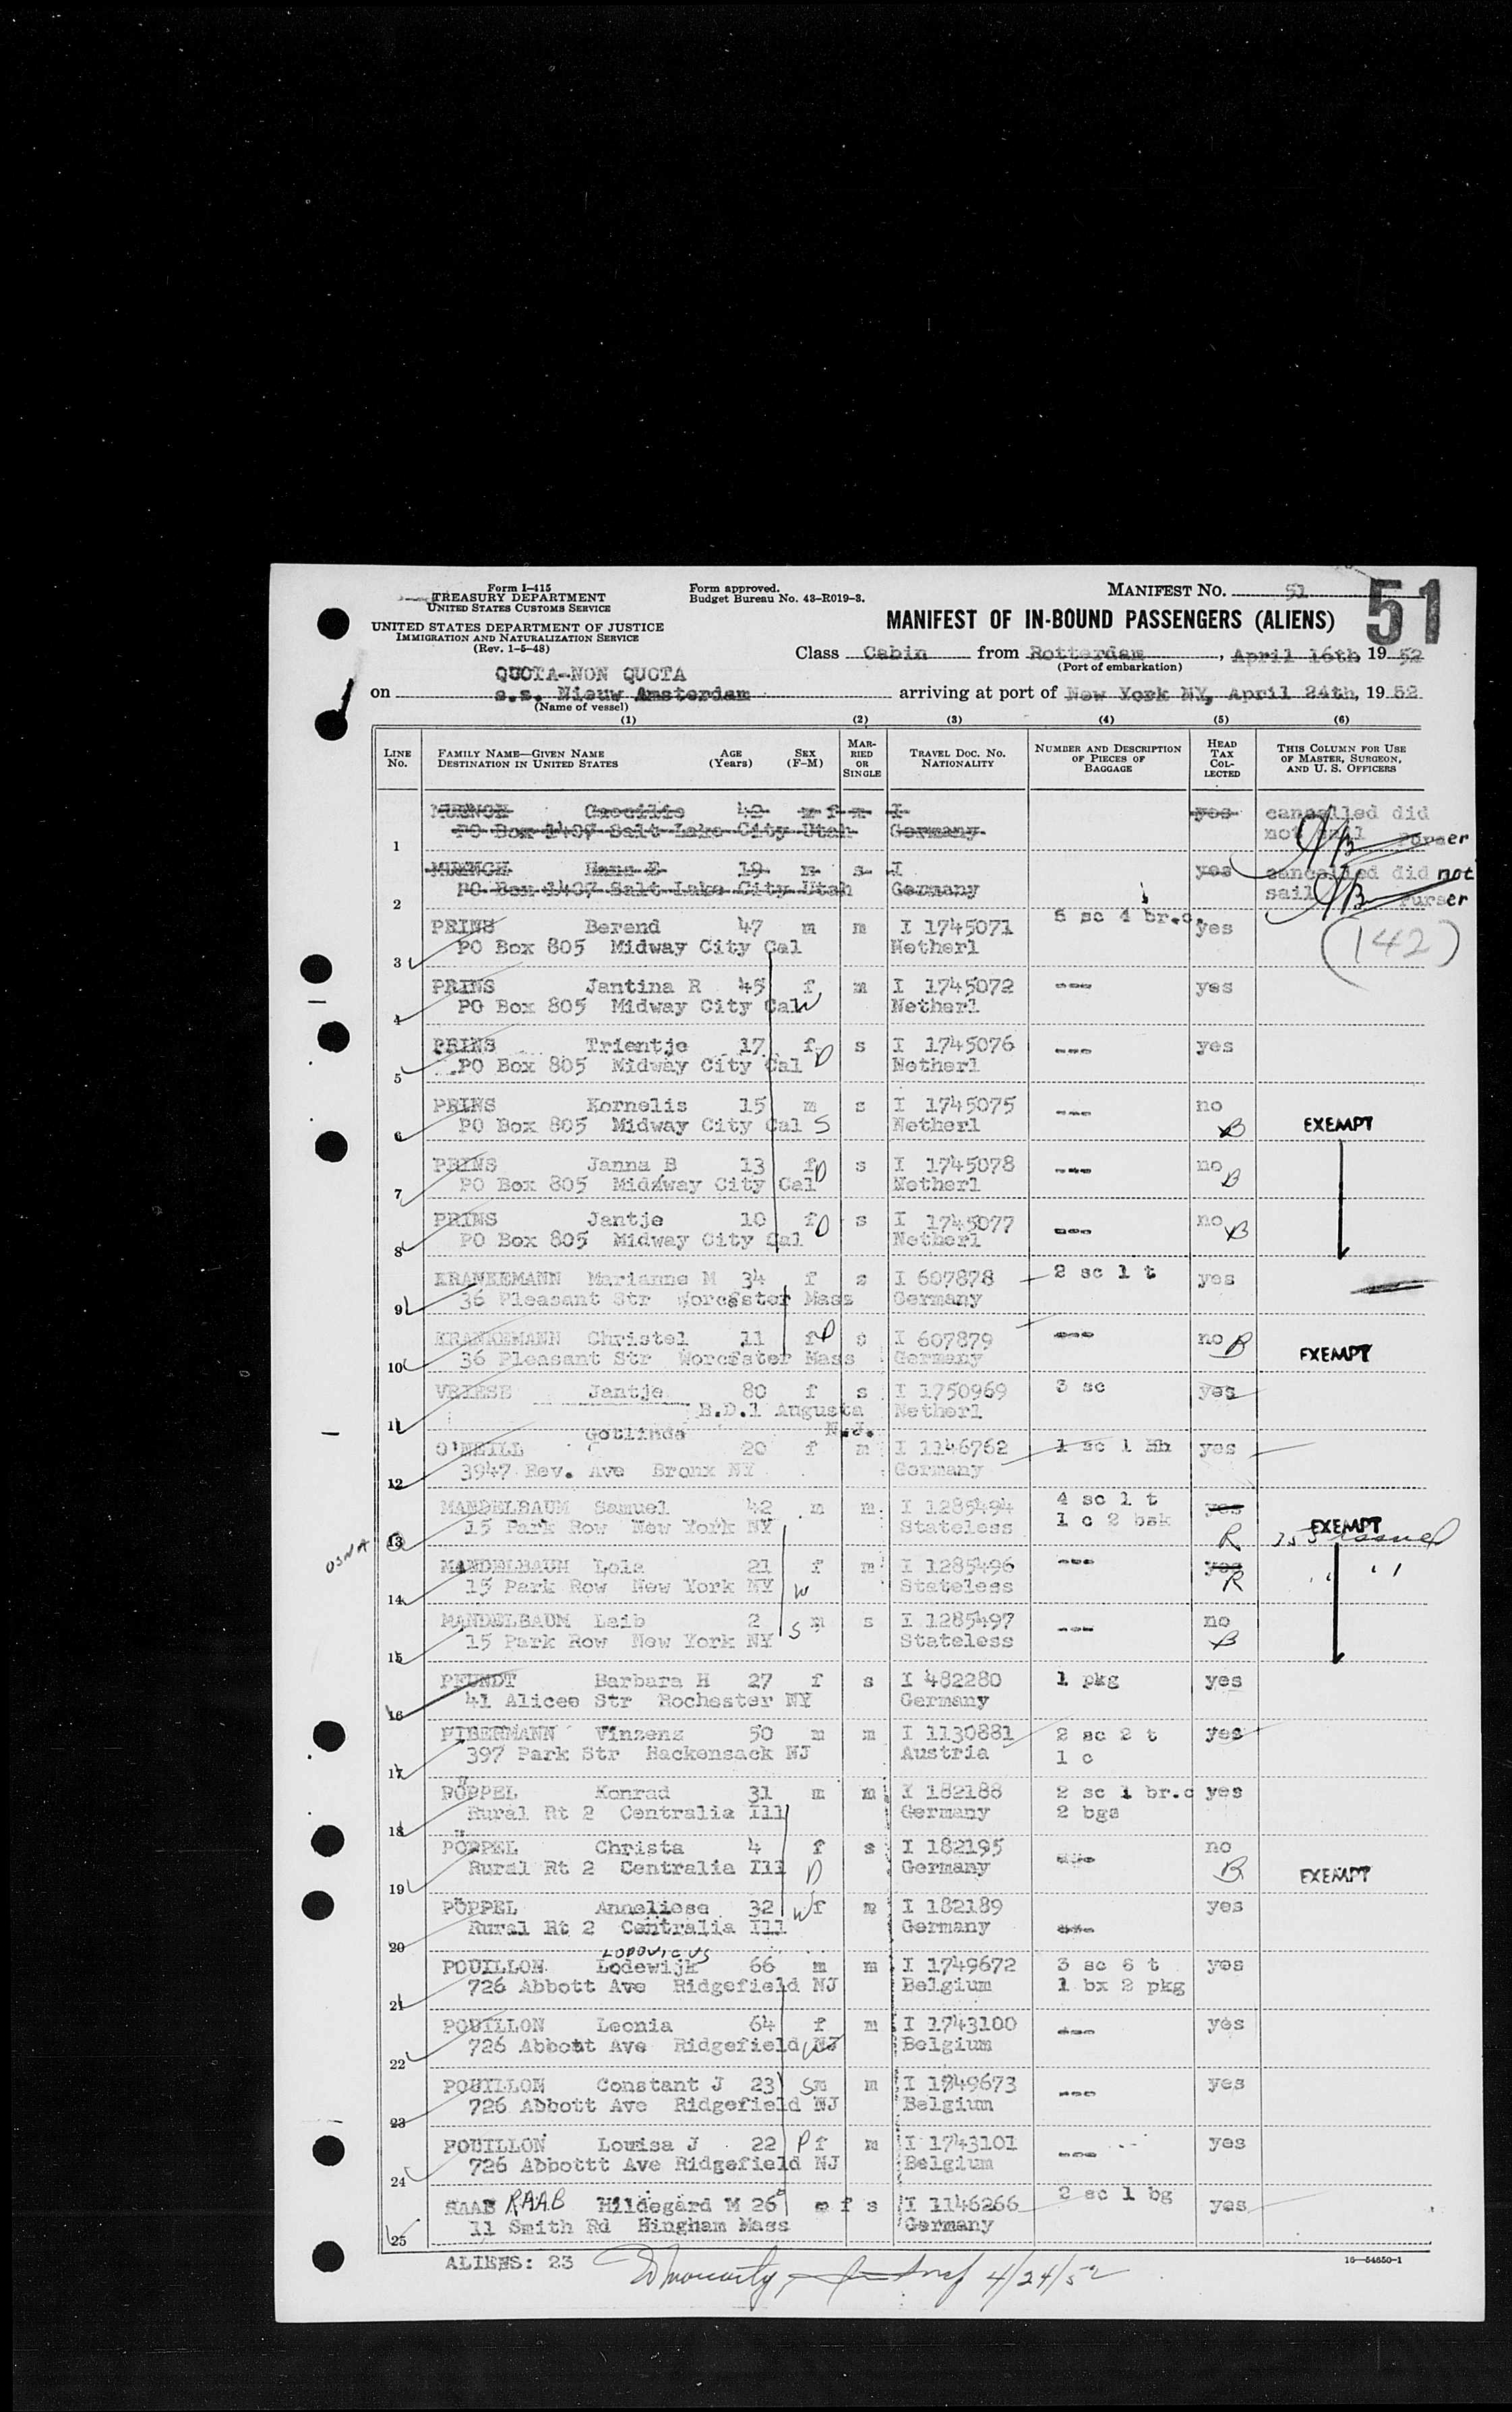 Form I-415
TREASURY DEPARTMENT
UNITED STATES CUSTOMS SERVICE
UNITED STATES DEPARTMENT OF JUSTICE
IMMIGRATION AND NATURALIZATION SERVICE
(Rev. 1-5-48)
Form approved.
Budget Bureau No. 43-R019-3.
MANIFEST NO. 51
51
MANIFEST OF IN-BOUND PASSENGERS (ALIENS)
Class Cabin from Rotterdam, April 16th, 1952
(Port of embarkation)
QUOTA-NON QUOTA
on s.s. Nieuw Amsterdam arriving at port of New York NY, April 24th, 1952
(Name of vessel)
(1) (2) (3) (4) (5) (6)
LINE No. FAMILY NAME—GIVEN NAME DESTINATION IN UNITED STATES AGE (Years) SEX (F-M) MARRIED OR SINGLE TRAVEL DOC. NO. NATIONALITY NUMBER AND DESCRIPTION OF PIECES OF BAGGAGE HEAD TAX COLLECTED THIS COLUMN FOR USE OF MASTER, SURGEON, AND U. S. OFFICERS
MUENCH Caecilie 42 m f m I yes cancelled did
1 PO Box 1407 Salt Lake City Utah Germany not sail Purser
MUENCH Hans E 19 m s I yes cancelled did not
2 PO Box 1407 Salt Lake City Utah Germany sail Purser
PRINS Berend 47 m m I 1745071 5 sc 4 br.c. yes (142)
3 PO Box 805 Midway City Cal Netherl
PRINS Jantina R 45 f m I 1745072 --- yes
4 PO Box 805 Midway City Cal W Netherl
PRINS Trientje 17 f D s I 1745076 --- yes
5 PO Box 805 Midway City Cal Netherl
PRINS Kornelis 15 m s I 1745075 --- no
6 PO Box 805 Midway City Cal S Netherl B EXEMPT
PRINS Janna B 13 f D s I 1745078 --- no B
7 PO Box 805 Midway City Cal Netherl
PRINS Jantje 10 f D s I 1745077 --- no B
8 PO Box 805 Midway City Cal Netherl
KRANKEMANN Marianne M 34 f s I 607878 2 sc 1 t yes
9 36 Pleasant Str Worcester Mass Germany
KRANKEMANN Christel 11 f D s I 607879 --- no B
10 36 Pleasant Str Worcester Mass Germany EXEMPT
VRIESE Jantje 80 f s I 1750969 3 sc yes
11 R.D.1 Augusta N.J. Netherl
O'NEILL Gotlinde 20 f m I 1146762 1 sc 1 Hb yes
12 3947 Rev. Ave Bronx NY Germany
MANDELBAUM Samuel 42 m m I 1285494 4 sc 1 t yes
13 15 Park Row New York NY Stateless 1 c 2 bsk R EXEMPT issued
OSNA
MANDELBAUM Lola 21 f m I 1285496 --- yes " "
14 15 Park Row New York NY W Stateless R
MANDELBAUM Leib 2 m s I 1285497 --- no
15 15 Park Row New York NY S Stateless B
PFUNDT Barbara H 27 f s I 482280 1 pkg yes
16 41 Alices Str Rochester NY Germany
PIBERMANN Vinzenz 50 m m I 1130881 2 sc 2 t yes
17 397 Park Str Hackensack NJ Austria 1 c
PÖPPEL Konrad 31 m m I 182188 2 sc 1 br.c yes
18 Rural Rt 2 Centralia Ill Germany 2 bgs
PÖPPEL Christa 4 f s I 182195 --- no
19 Rural Rt 2 Centralia Ill D Germany B EXEMPT
PÖPPEL Anneliese 32 W f m I 182189 yes
20 Rural Rt 2 Centralia Ill Germany ---
LODOVICUS
POUILLON Lodewijk 66 m m I 1749672 3 sc 6 t yes
21 726 Abbott Ave Ridgefield NJ Belgium 1 bx 2 pkg
POUILLON Leonia 64 f m I 1743100 --- yes
22 726 Abbott Ave Ridgefield NJ W Belgium
POUILLON Constant J 23 S m m I 1749673 --- yes
23 726 Abbott Ave Ridgefield NJ Belgium
POUILLON Louisa J 22 D f m I 1743101 --- yes
24 726 Abbottt Ave Ridgefield NJ Belgium
RAAB RAAB Hildegard M 26 m f s I 1146266 2 sc 1 bg yes
25 11 Smith Rd Hingham Mass Germany
ALIENS: 23 4/24/52
16—54650-1